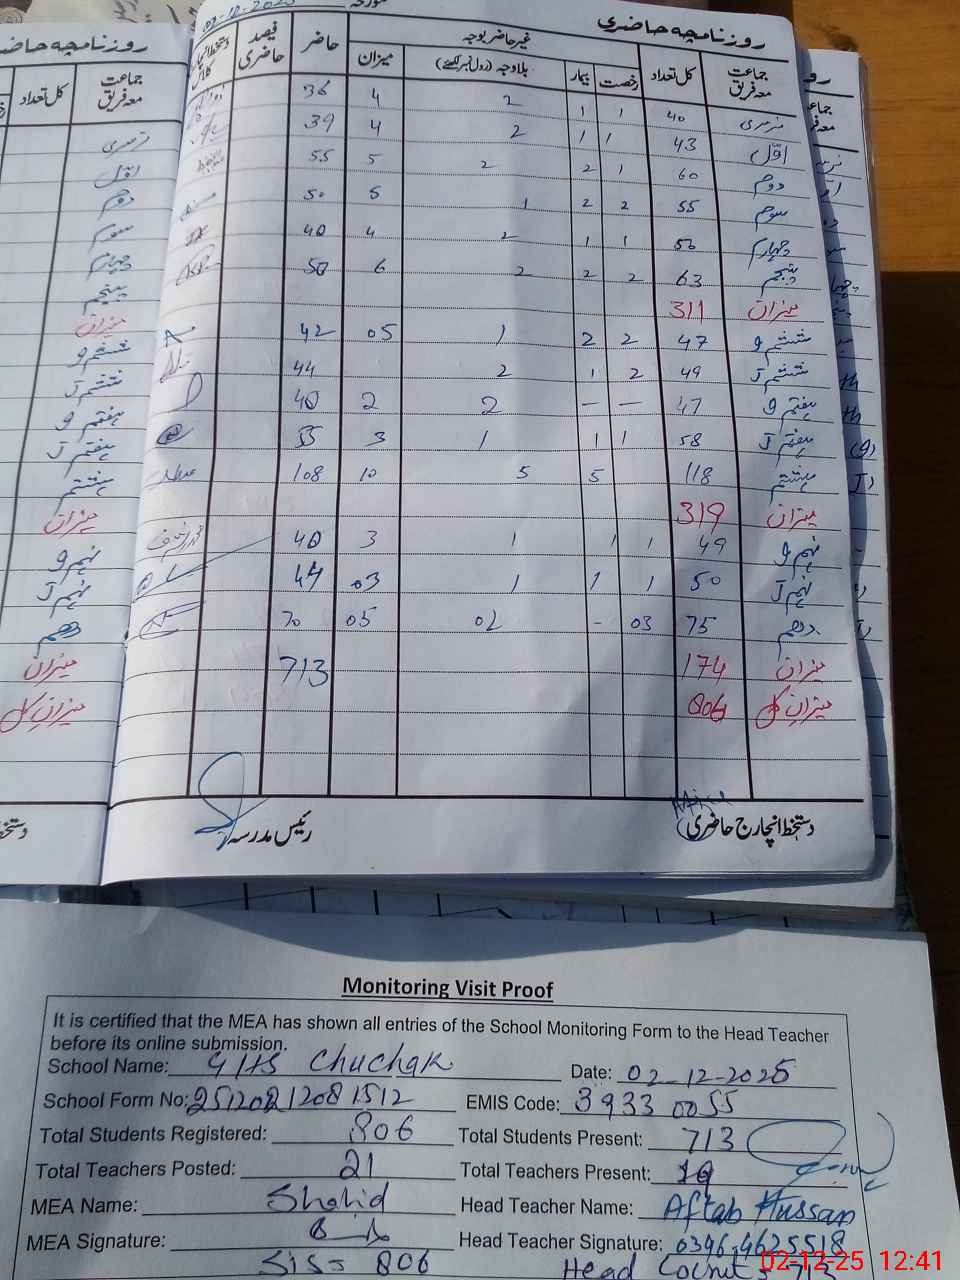 روزنامچہ حاضری
غیر حاضر بوجہ
جماعت معہ فریق کل تعداد رخصت بیمار بلاوجہ (رول نمبر لکھئے) میزان حاضر فیصد حاضری
نرسری 40 1 1 2 4 36
اوّل 43 1 1 2 4 39
دوم 60 1 2 2 5 55
سوم 55 2 2 1 5 50
چہارم 1 1 2 4
پنجم 63 2 2 2 6 50
میزان 311
ششم و 47 2 2 1 05 42
ششم J 49 2 1 2 44
ہفتم و 47 — — 2 2
ہفتم J 58 1 1 1 3 55
ہشتم 118 5 5 10 108
میزان 319
نہم و 49 1 1 1 3
نہم J 50 1 1 1 03
دہم 75 03 - 02 05 70
میزان 174 713
میزان کل 806
دستخط انچارج حاضری رئیس مدرسہ
روزنامچہ حاضری
جماعت معہ فریق کل تعداد
نرسری
اوّل
دوم
سوم
چہارم
پنجم
میزان
ششم و
ششم J
ہفتم و
ہفتم J
ہشتم
میزان
نہم و
نہم J
دہم
میزان
میزان کل
Monitoring Visit Proof
It is certified that the MEA has shown all entries of the School Monitoring Form to the Head Teacher
before its online submission.
School Name: GHS Chuchak Date: 02-12-2025
School Form No: 2512021208 1512 EMIS Code: 3933 0055
Total Students Registered: 806 Total Students Present: 713
Total Teachers Posted: 21 Total Teachers Present: 19
MEA Name: Shahid Head Teacher Name: Aftab Hussan
MEA Signature: Head Teacher Signature: 0346-4625518
SIS = 806 Head Count = 713
02-12-25 12:41